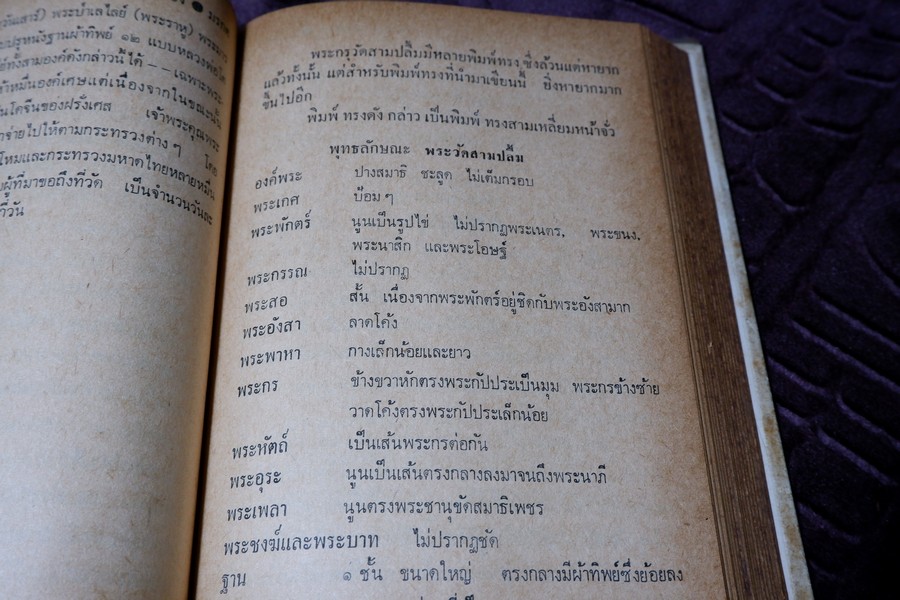 ● มรดก
(วันเสาร์) พระป่าเลไลย์ (พระราหู)
ปรุหนังฐานผ้าทิพย์ ๑๒ แบบหลวงพ่อโต
ทั้งสามองค์ดังกล่าวนี้ได้ -- เฉพาะพระ
หมื่นองค์เศษแต่เนื่องจากในขณะนั้น
นโดจีนของฝรั่งเศส เจ้าพระคุณพระ
จ่ายไปให้ตามกระทรวงต่างๆ โดย
โหมและกระทรวงมหาดไทยหลายหมื่น
ผู้ที่มาขอถึงที่วัด เป็นจำนวนวันละ
ที่วัน
พระกรุวัดสามปลื้มมีหลายพิมพ์ทรง ซึ่งล้วนแต่หายาก
แล้วทั้งนั้น แต่สำหรับพิมพ์ทรงที่นำมาเขียนนี้ ยิ่งหายากมาก
ขึ้นไปอีก
พิมพ์ ทรงดัง กล่าว เป็นพิมพ์ ทรงสามเหลี่ยมหน้าจั่ว
พุทธลักษณะ พระวัดสามปลื้ม
องค์พระ ปางสมาธิ ชะลูด ไม่เต็มกรอบ
พระเกศ ป้อมๆ
พระพักตร์ นูนเป็นรูปไข่ ไม่ปรากฏพระเนตร, พระขนง,
พระนาสิก และพระโอษฐ์
พระกรรณ ไม่ปรากฏ
พระสอ สั้น เนื่องจากพระพักตร์อยู่ชิดกับพระอังสามาก
พระอังสา ลาดโค้ง
พระพาหา กางเล็กน้อยและยาว
พระกร ข้างขวาหักตรงพระกัปประเป็นมุม พระกรข้างซ้าย
วาดโค้งตรงพระกัปประเล็กน้อย
พระหัตถ์ เป็นเส้นพระกรต่อกัน
พระอุระ นูนเป็นเส้นตรงกลางลงมาจนถึงพระนาภี
พระเพลา นูนตรงพระชานุขัดสมาธิเพชร
พระชงฆ์และพระบาท ไม่ปรากฏชัด
ฐาน ๑ ชั้น ขนาดใหญ่ ตรงกลางมีผ้าทิพย์ซึ่งย้อยลง